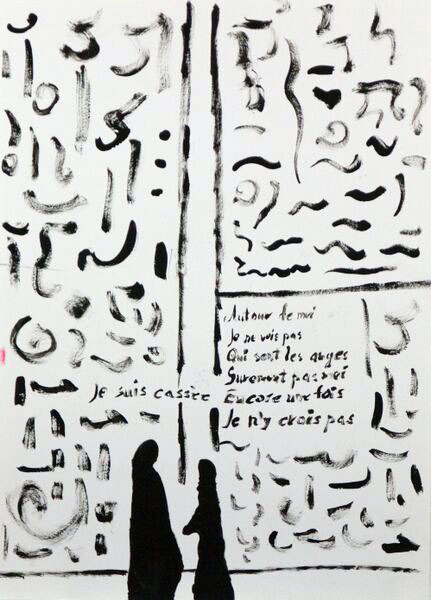 Autour de moi
Je ne vois pas
Qui sont les anges
Surement pas moi
Je suis cassée
Encore une fois
Je n'y crois pas